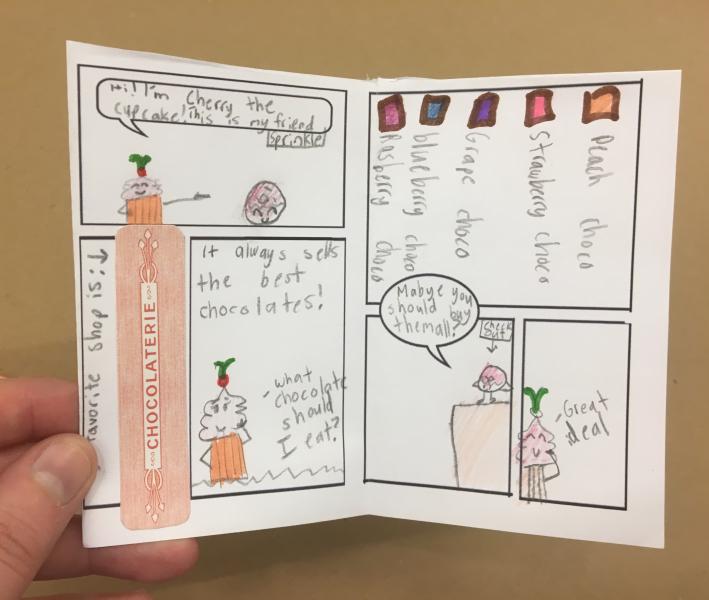 Hi! I'm Cherry the
cupcake! This is my friend
Sprinkle
favorite shop is:
CHOCOLATERIE
It always sells
the best
chocolates!
what
chocolate
should
I eat?
Rasberry choco
blueberry choco
Grape choco
Strawberry choco
Peach choco
Mabye you
should buy
them all?
Check
out
Great
deal